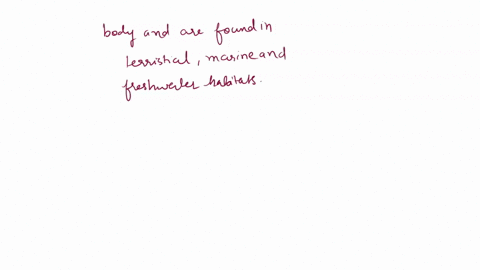 body and are found in
terristial, marine and
freshwater habitats.